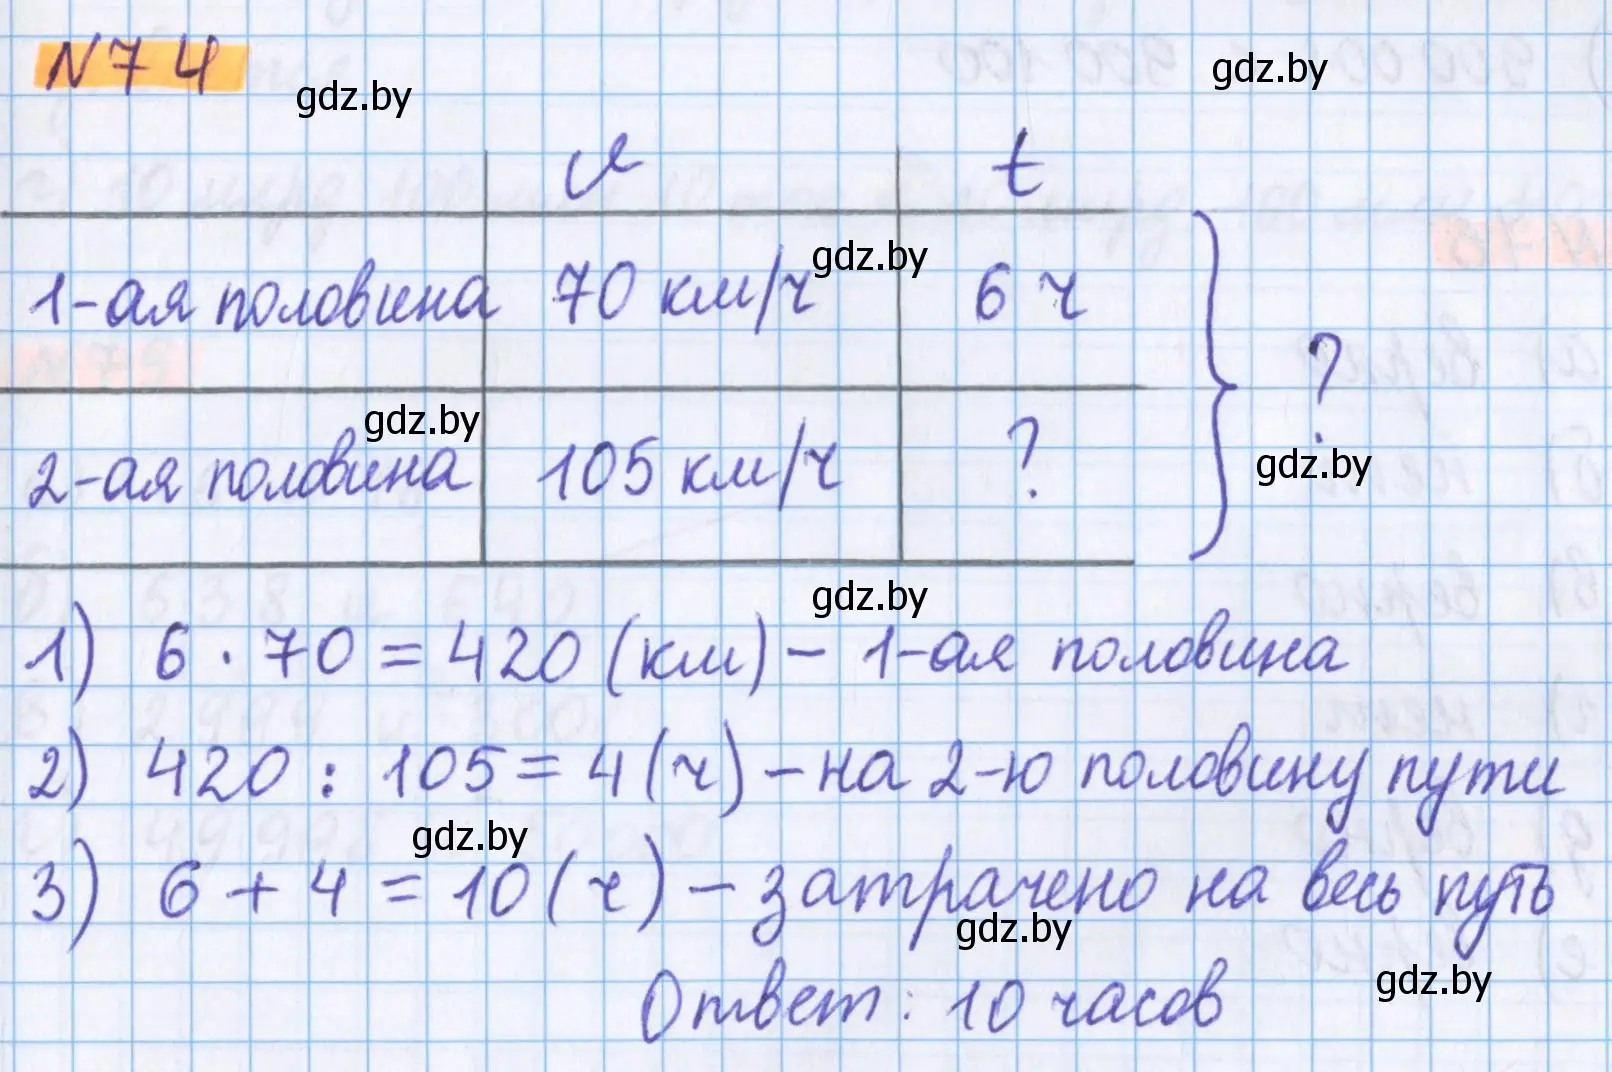 N74
gdz.by
gdz.by
v t
gdz.by
1-ая половина 70 км/ч 6 ч
?
gdz.by
2-ая половина 105 км/ч ?
gdz.by
gdz.by
1) 6 · 70 = 420 (км) – 1-ая половина
2) 420 : 105 = 4 (ч) – на 2-ю половину пути
gdz.by
3) 6 + 4 = 10 (ч) – затрачено на весь путь
gdz.by
gdz.by
Ответ: 10 часов